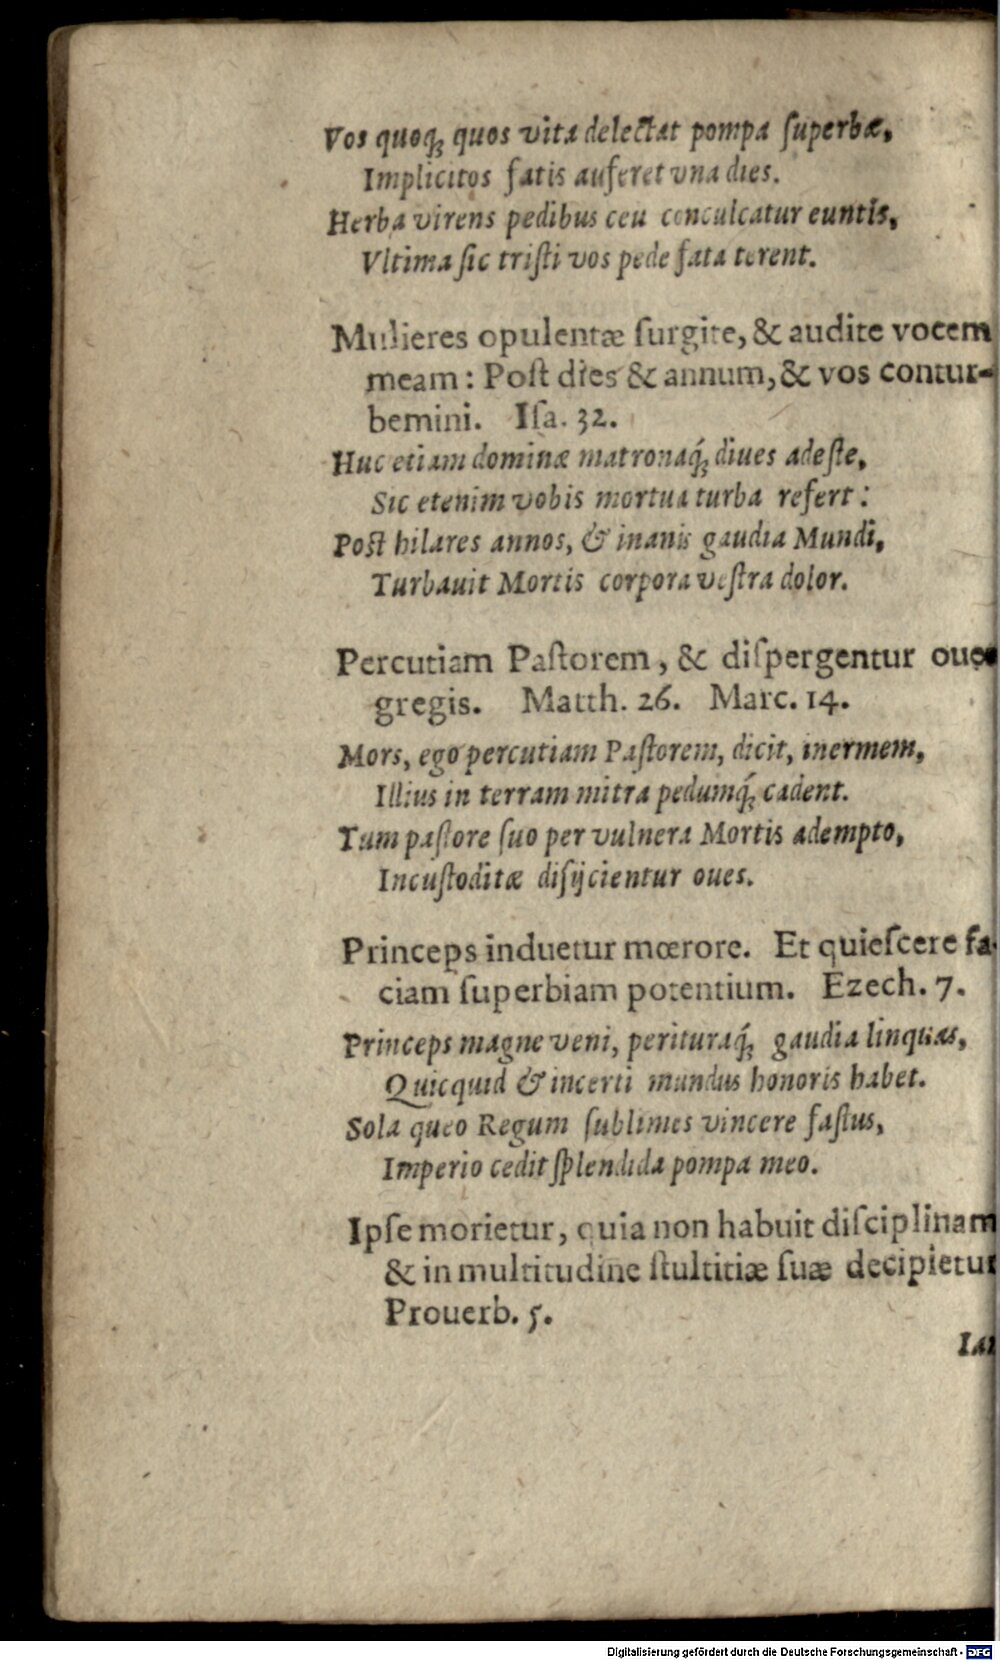 Vos quoq; quos vita delectat pompa ſuperbæ,
Implicitos fatis auferet vna dies.
Herba virens pedibus ceu conculcatur euntis,
Vltima ſic triſti vos pede fata terent.
Mulieres opulentæ ſurgite, & audite vocem
meam: Poſt dies & annum, & vos contur-
bemini. Iſa. 32.
Huc etiam dominæ matronaq́; diues adeſte,
Sic etenim vobis mortua turba refert:
Poſt hilares annos, & inanis gaudia Mundi,
Turbauit Mortis corpora veſtra dolor.
Percutiam Paſtorem, & diſpergentur oues
gregis. Matth. 26. Marc. 14.
Mors, ego percutiam Paſtorem, dicit, inermem,
Illius in terram mitra pedumq́; cadent.
Tum paſtore ſuo per vulnera Mortis adempto,
Incuſtoditæ diſijcientur oues.
Princeps induetur mœrore. Et quieſcere fa-
ciam ſuperbiam potentium. Ezech. 7.
Princeps magne veni, perituraq́; gaudia linquas,
Quicquid & incerti mundus honoris habet.
Sola queo Regum ſublimes vincere faſtus,
Imperio cedit ſplendida pompa meo.
Ipſe morietur, quia non habuit diſciplinam
& in multitudine ſtultitiæ ſuæ decipietur
Prouerb. 5.
Digitalisierung gefördert durch die Deutsche Forschungsgemeinschaft - DFG